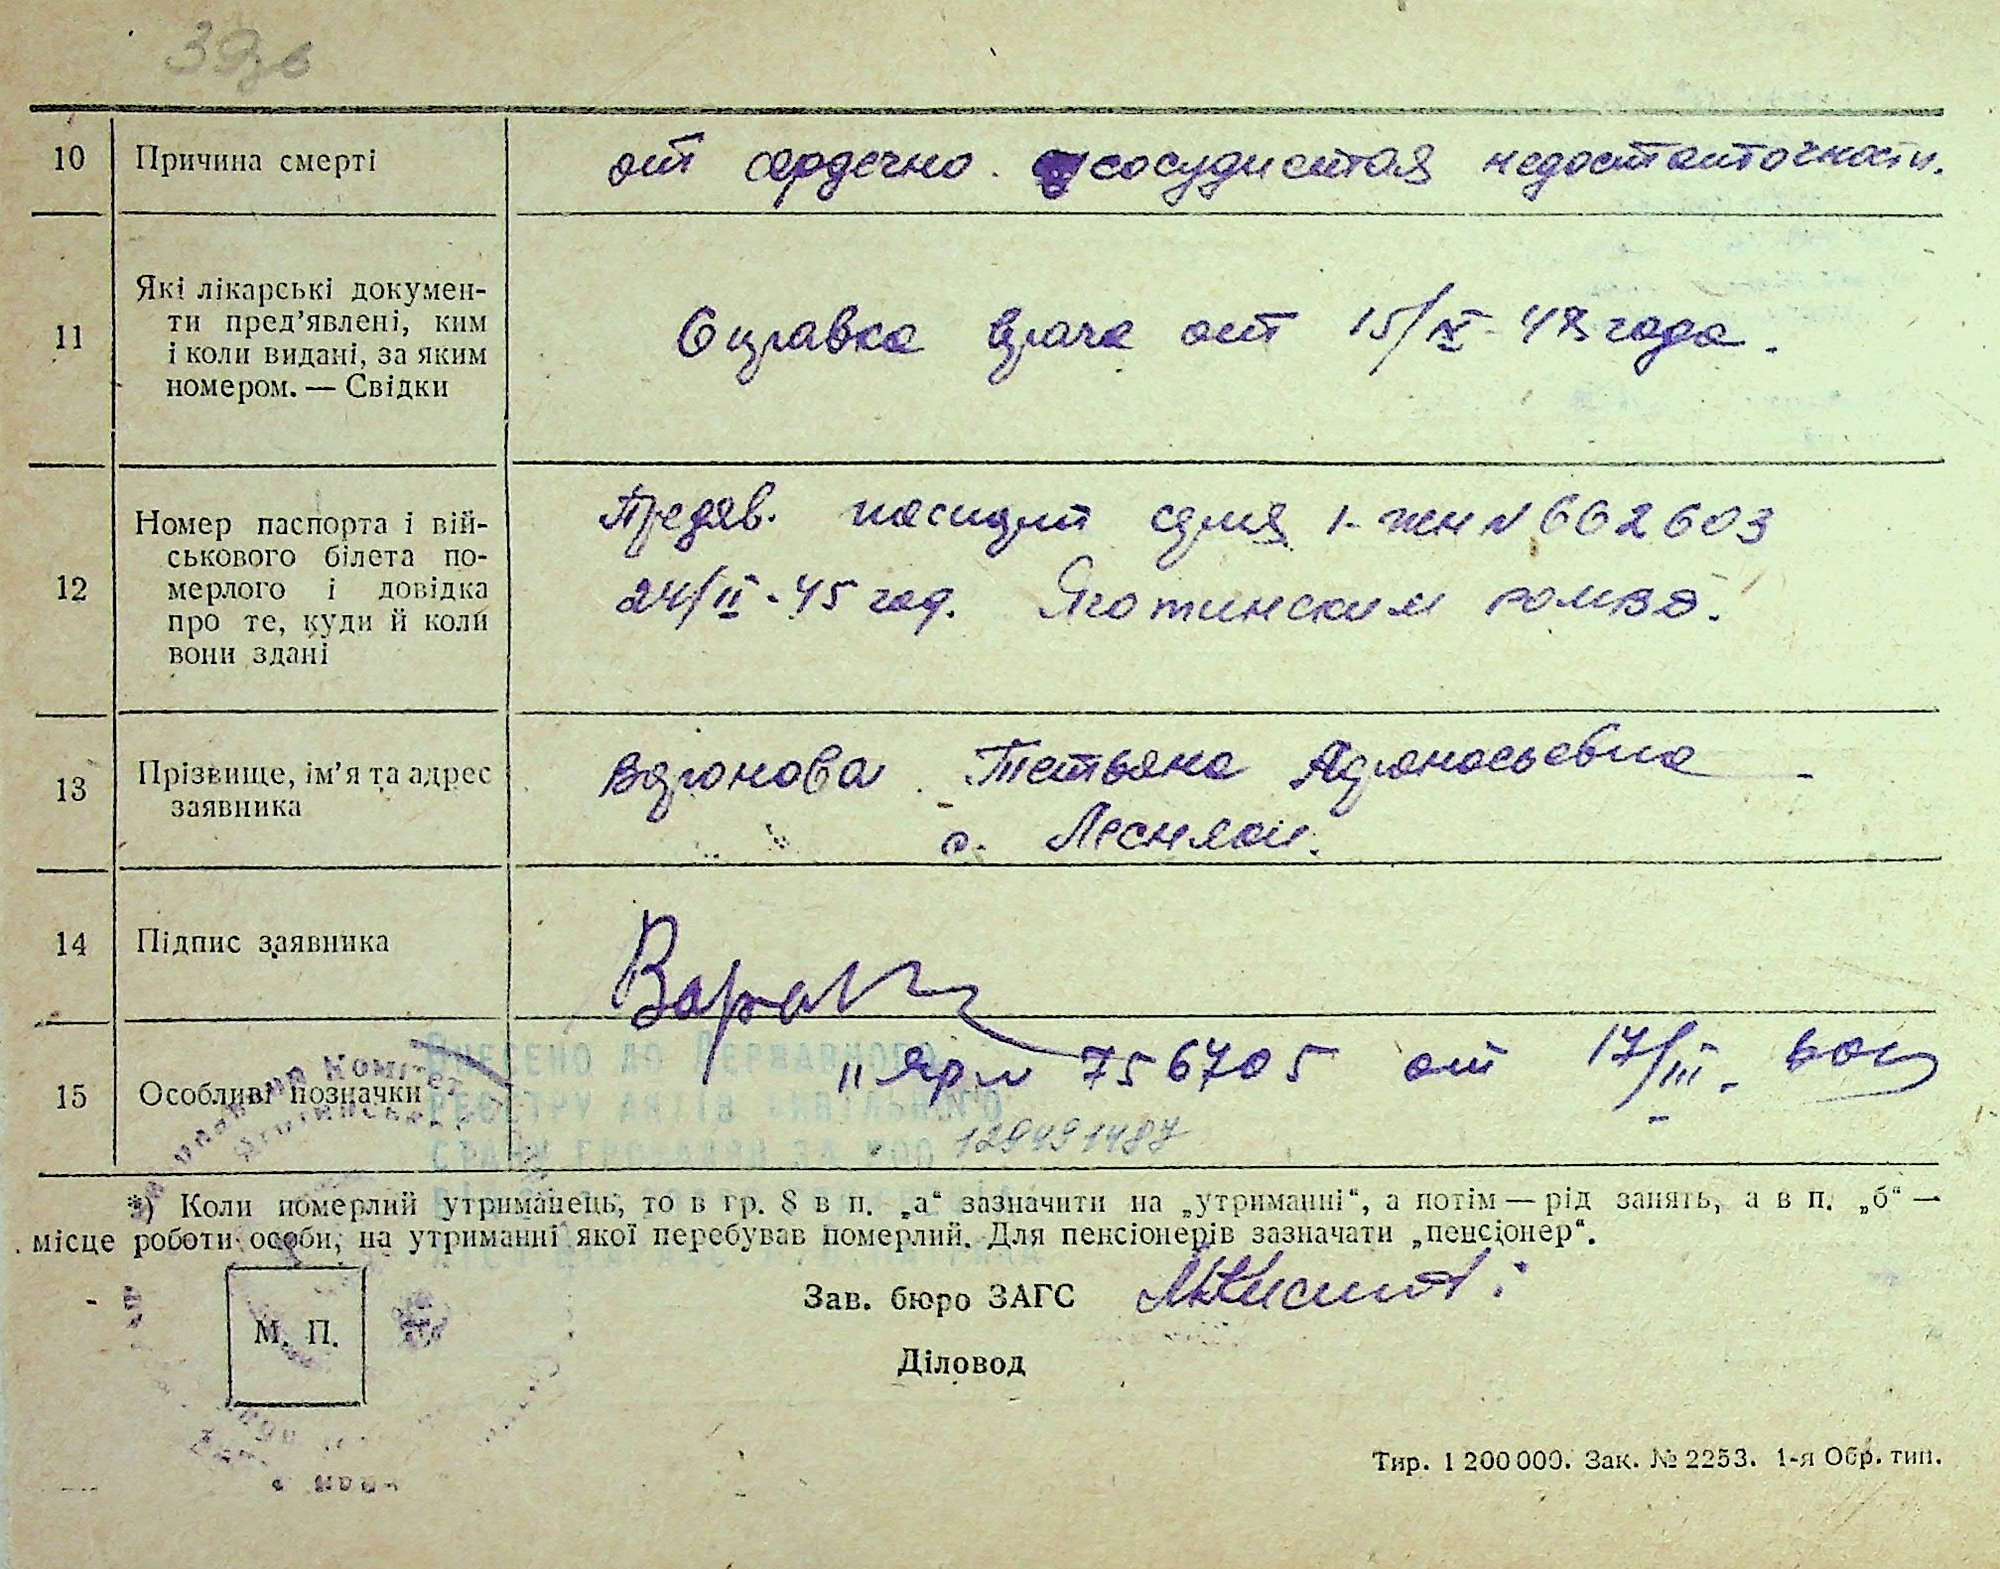 10 Причина смерті от сердечно. сосудистая недостаточности.
11 Які лікарські докумен-
ти пред’явлені, ким
і коли видані, за яким
номером. — Свідки
Справка врача от 15/IX - 48 года.
12 Номер паспорта і вій-
ськового білета по-
мерлого і довідка
про те, куди й коли
вони здані
Предяв. паспорт серия I-жн N 662603
24/II - 45 год. Яготинским
13 Прізвище, ім’я та адрес
заявника
Татьяна Афанасьевна
с.
14 Підпис заявника
15 Особливі позначки
II яр N 756705 от 17/III.
Внесено до Державного
реєстру актів цивільного
129491487
*) Коли померлий утриманець, то в гр. 8 в п. „а“ зазначити на „утриманні“, а потім — рід занять, а в п. „б“ —
місце роботи особи, на утриманні якої перебував померлий. Для пенсіонерів зазначати „пенсіонер“.
Зав. бюро ЗАГС
М. П.
Діловод
Тир. 1 200 000. Зак. № 2253. 1-я Обр. тип.